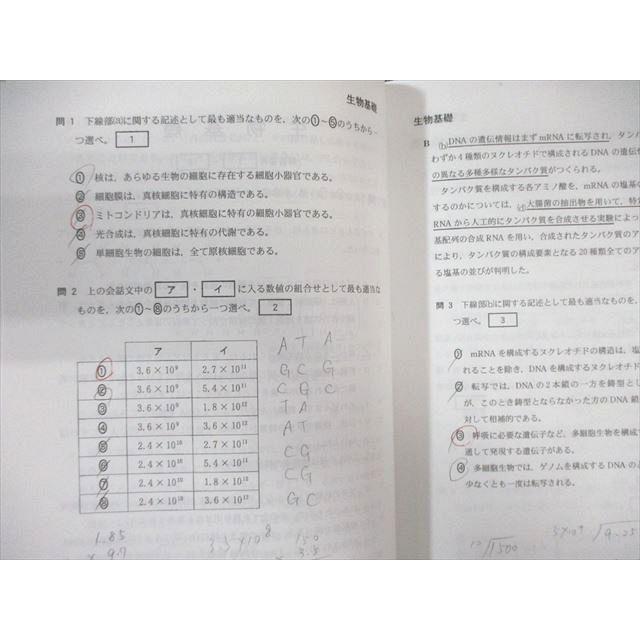 生物基礎
問1 下線部(a)に関する記述として最も適当なものを，次の①～⑤のうちから一
つ選べ。 1
① 核は，あらゆる生物の細胞に存在する細胞小器官である。
② 細胞膜は，真核細胞に特有の構造である。
③ ミトコンドリアは，真核細胞に特有の細胞小器官である。
④ 光合成は，真核細胞に特有の代謝である。
⑤ 単細胞生物の細胞は，全て原核細胞である。
問2 上の会話文中の ア ・ イ に入る数値の組合せとして最も適当な
ものを，次の①～⑧のうちから一つ選べ。 2
ア イ
① 3.6×10⁹ 2.7×10¹¹
② 3.6×10⁹ 5.4×10¹¹
③ 3.6×10⁹ 1.8×10¹²
④ 3.6×10⁹ 3.6×10¹²
⑤ 2.4×10¹⁰ 2.7×10¹¹
⑥ 2.4×10¹⁰ 5.4×10¹¹
⑦ 2.4×10¹⁰ 1.8×10¹²
⑧ 2.4×10¹⁰ 3.6×10¹²
A T A
G C G
C G C
T A
A T
C G
C G
G C
1.85
150
3.5
生物基礎
B (b)DNAの遺伝情報はまずmRNAに転写され，タン
わずか4種類のヌクレオチドで構成されるDNAの遺伝
の異なる多種多様なタンパク質がつくられる。
タンパク質を構成する各アミノ酸を，mRNAの塩基
するのかについては，(c)大腸菌の抽出物を用いて，特
RNAから人工的にタンパク質を合成させる実験によっ
基配列の合成RNAを用い，合成されたタンパク質のア
により，タンパク質の構成要素となる20種類全てのア
る塩基の並びが判明した。
問3 下線部(b)に関する記述として最も適当なものを，
つ選べ。 3
① mRNAを構成するヌクレオチドの構造は，塩
れることを除き，DNAを構成するヌクレオチド
② 転写では，DNAの2本鎖の一方を鋳型とし
が，このとき鋳型とならなかった方のDNA鎖
対して相補的である。
③ 呼吸に必要な遺伝子など，多細胞生物を構成
通して発現する遺伝子がある。
④ 多細胞生物では，ゲノムを構成するDNAの
少なくとも一度は転写される。
1500